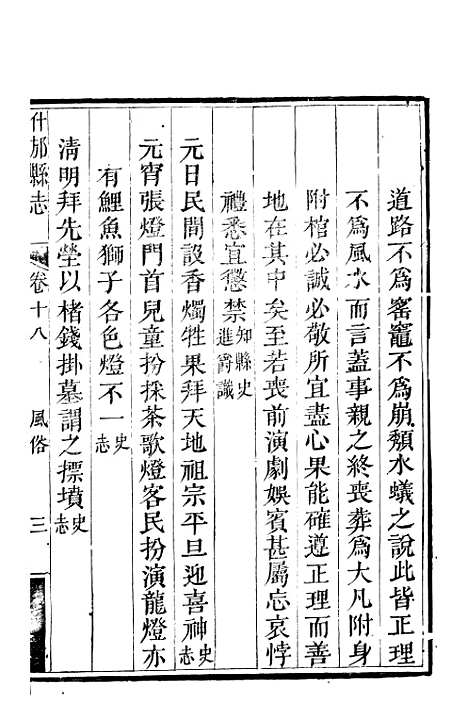 道路不爲窑竈不爲崩頽水蟻之說此皆正理
不爲風水而言蓋事親之終喪葬爲大凡附身
附棺必誠必敬所宜盡心果能確遵正理而善
地在其中矣至若喪前演劇娛賓甚屬忘哀悖
禮悉宜懲禁知縣史進爵識
元日民間設香燭牲果拜天地祖宗平旦迎喜神史志
元宵張燈門首兒童扮採茶歌燈客民扮演龍燈亦
有鯉魚獅子各色燈不一史志
淸明拜先塋以楮錢掛墓謂之摽墳史志
什邡縣志 卷十八 風俗 三